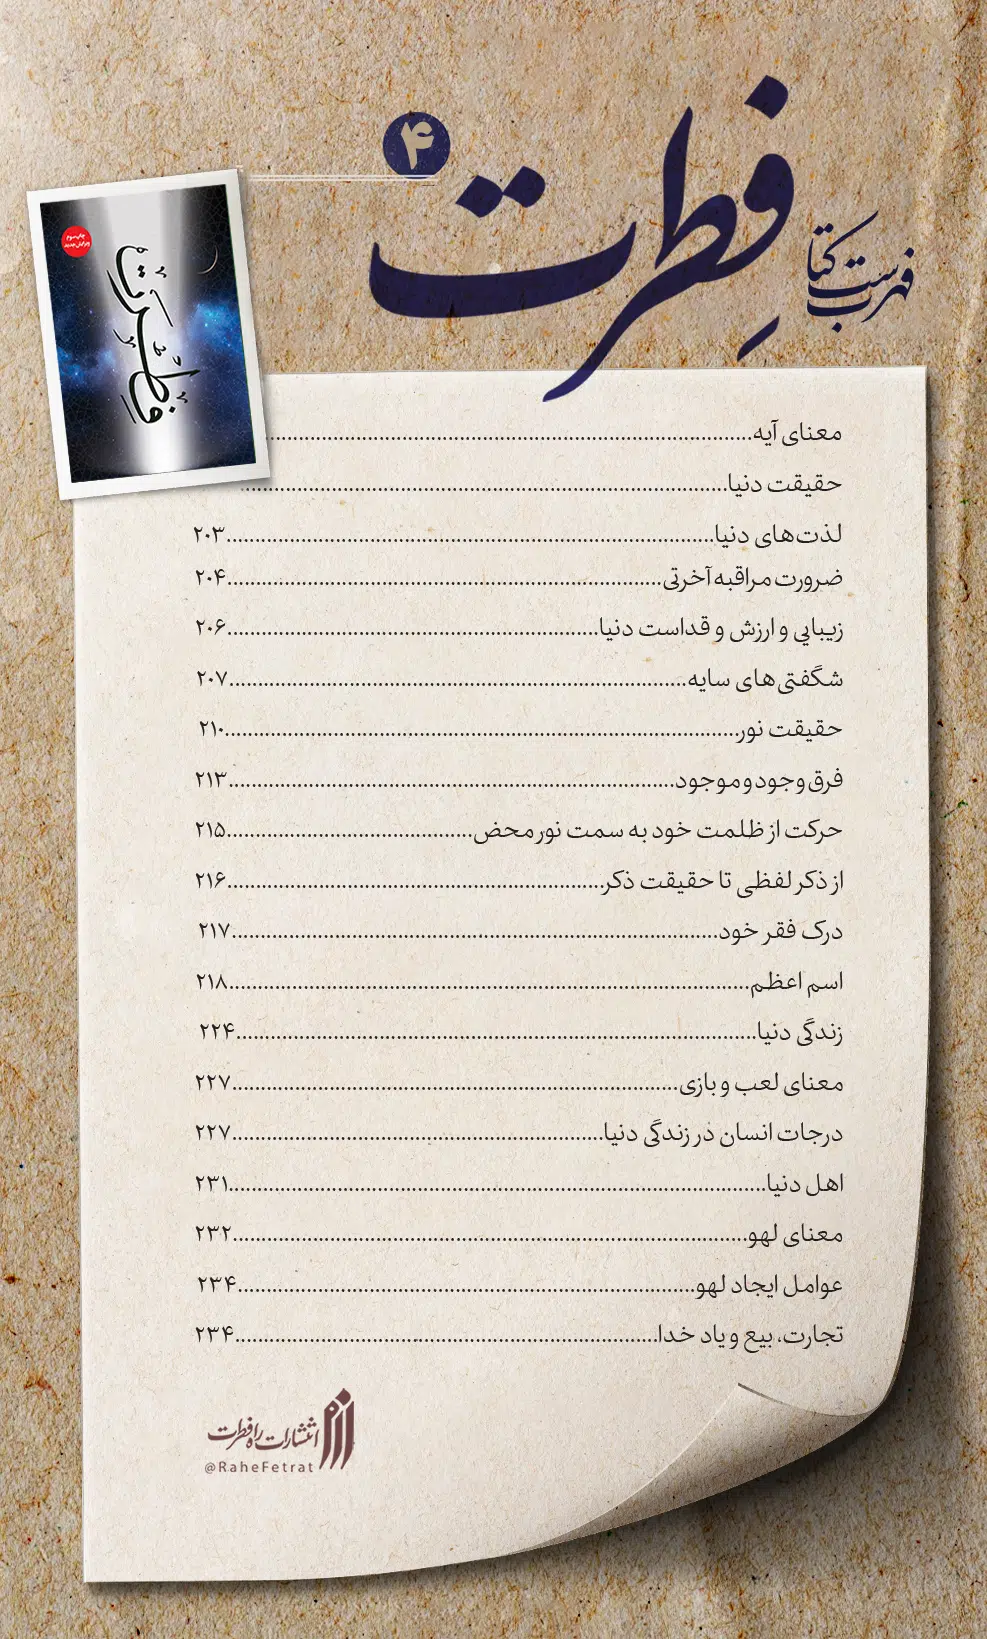 فهرست کتاب
فِطرت
۴
چاپ سوم
ویرایش جدید
فِطْرَتْ
معنای آیه
حقیقت دنیا
لذت‌های دنیا ۲۰۳
ضرورت مراقبه آخرتی ۲۰۴
زیبایی و ارزش و قداست دنیا ۲۰۶
شگفتی‌های سایه ۲۰۷
حقیقت نور ۲۱۰
فرق وجود و موجود ۲۱۳
حرکت از ظلمت خود به سمت نور محض ۲۱۵
از ذکر لفظی تا حقیقت ذکر ۲۱۶
درک فقر خود ۲۱۷
اسم اعظم ۲۱۸
زندگی دنیا ۲۲۴
معنای لعب و بازی ۲۲۷
درجات انسان در زندگی دنیا ۲۲۷
اهل دنیا ۲۳۱
معنای لهو ۲۳۲
عوامل ایجاد لهو ۲۳۴
تجارت، بیع و یاد خدا ۲۳۴
انتشارات راه فطرت
@RaheFetrat